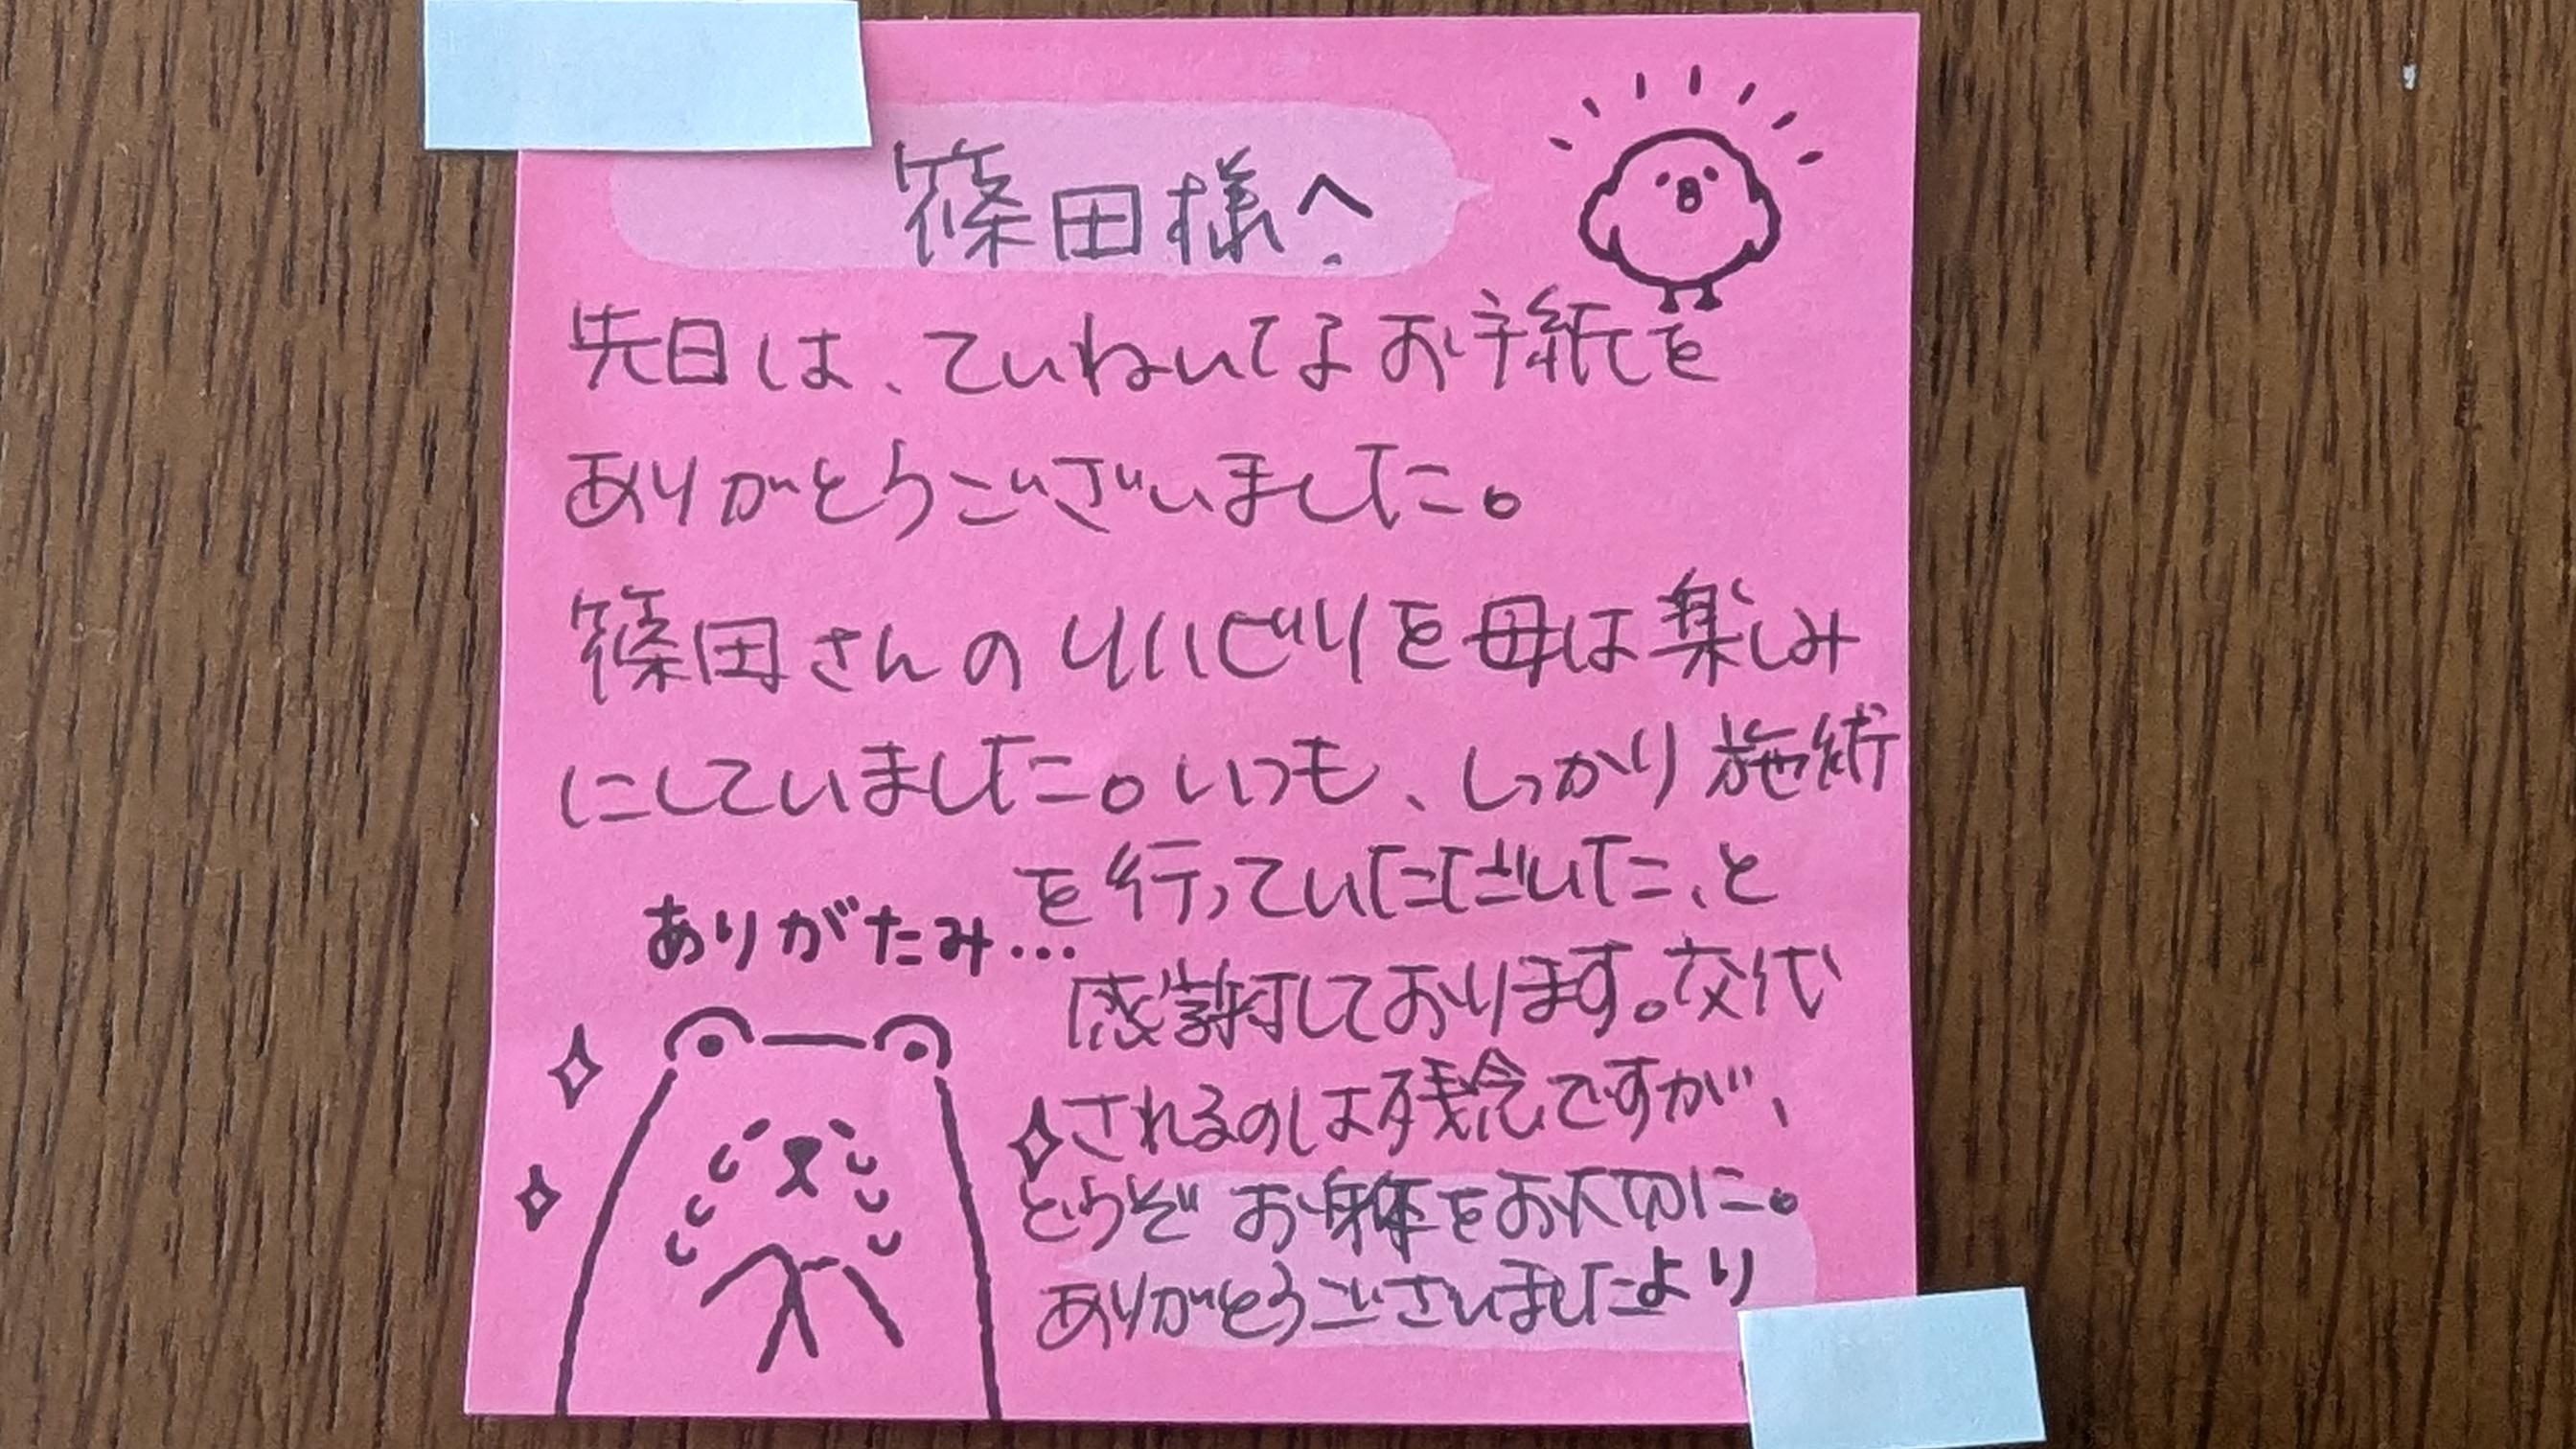 篠田様へ
先日は、ていねいてなお手紙を
ありがとうございました。
篠田さんのリハビリを母は楽しみ
にしていました。いつも、しっかり施術
を行っていただいた、と
ありがたみ…
感謝しております。交代
されるのは残念ですが、
どうぞお身体をお大切に。
ありがとうございましたより